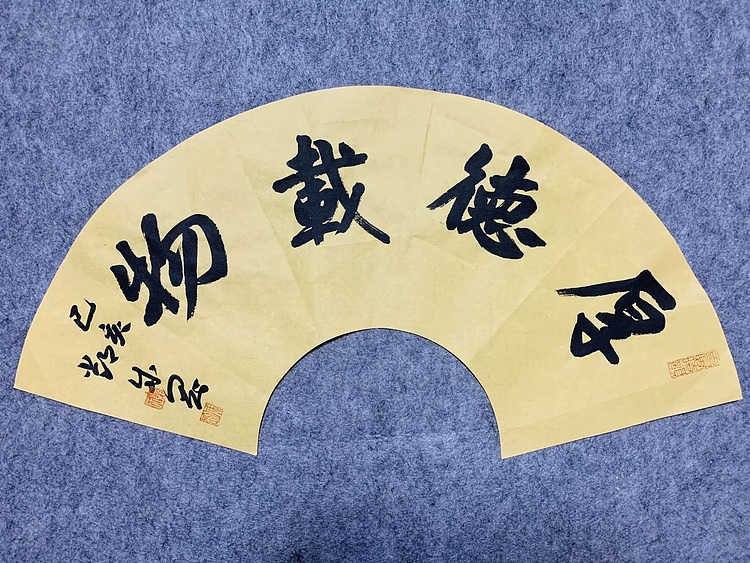 厚德載物
己亥